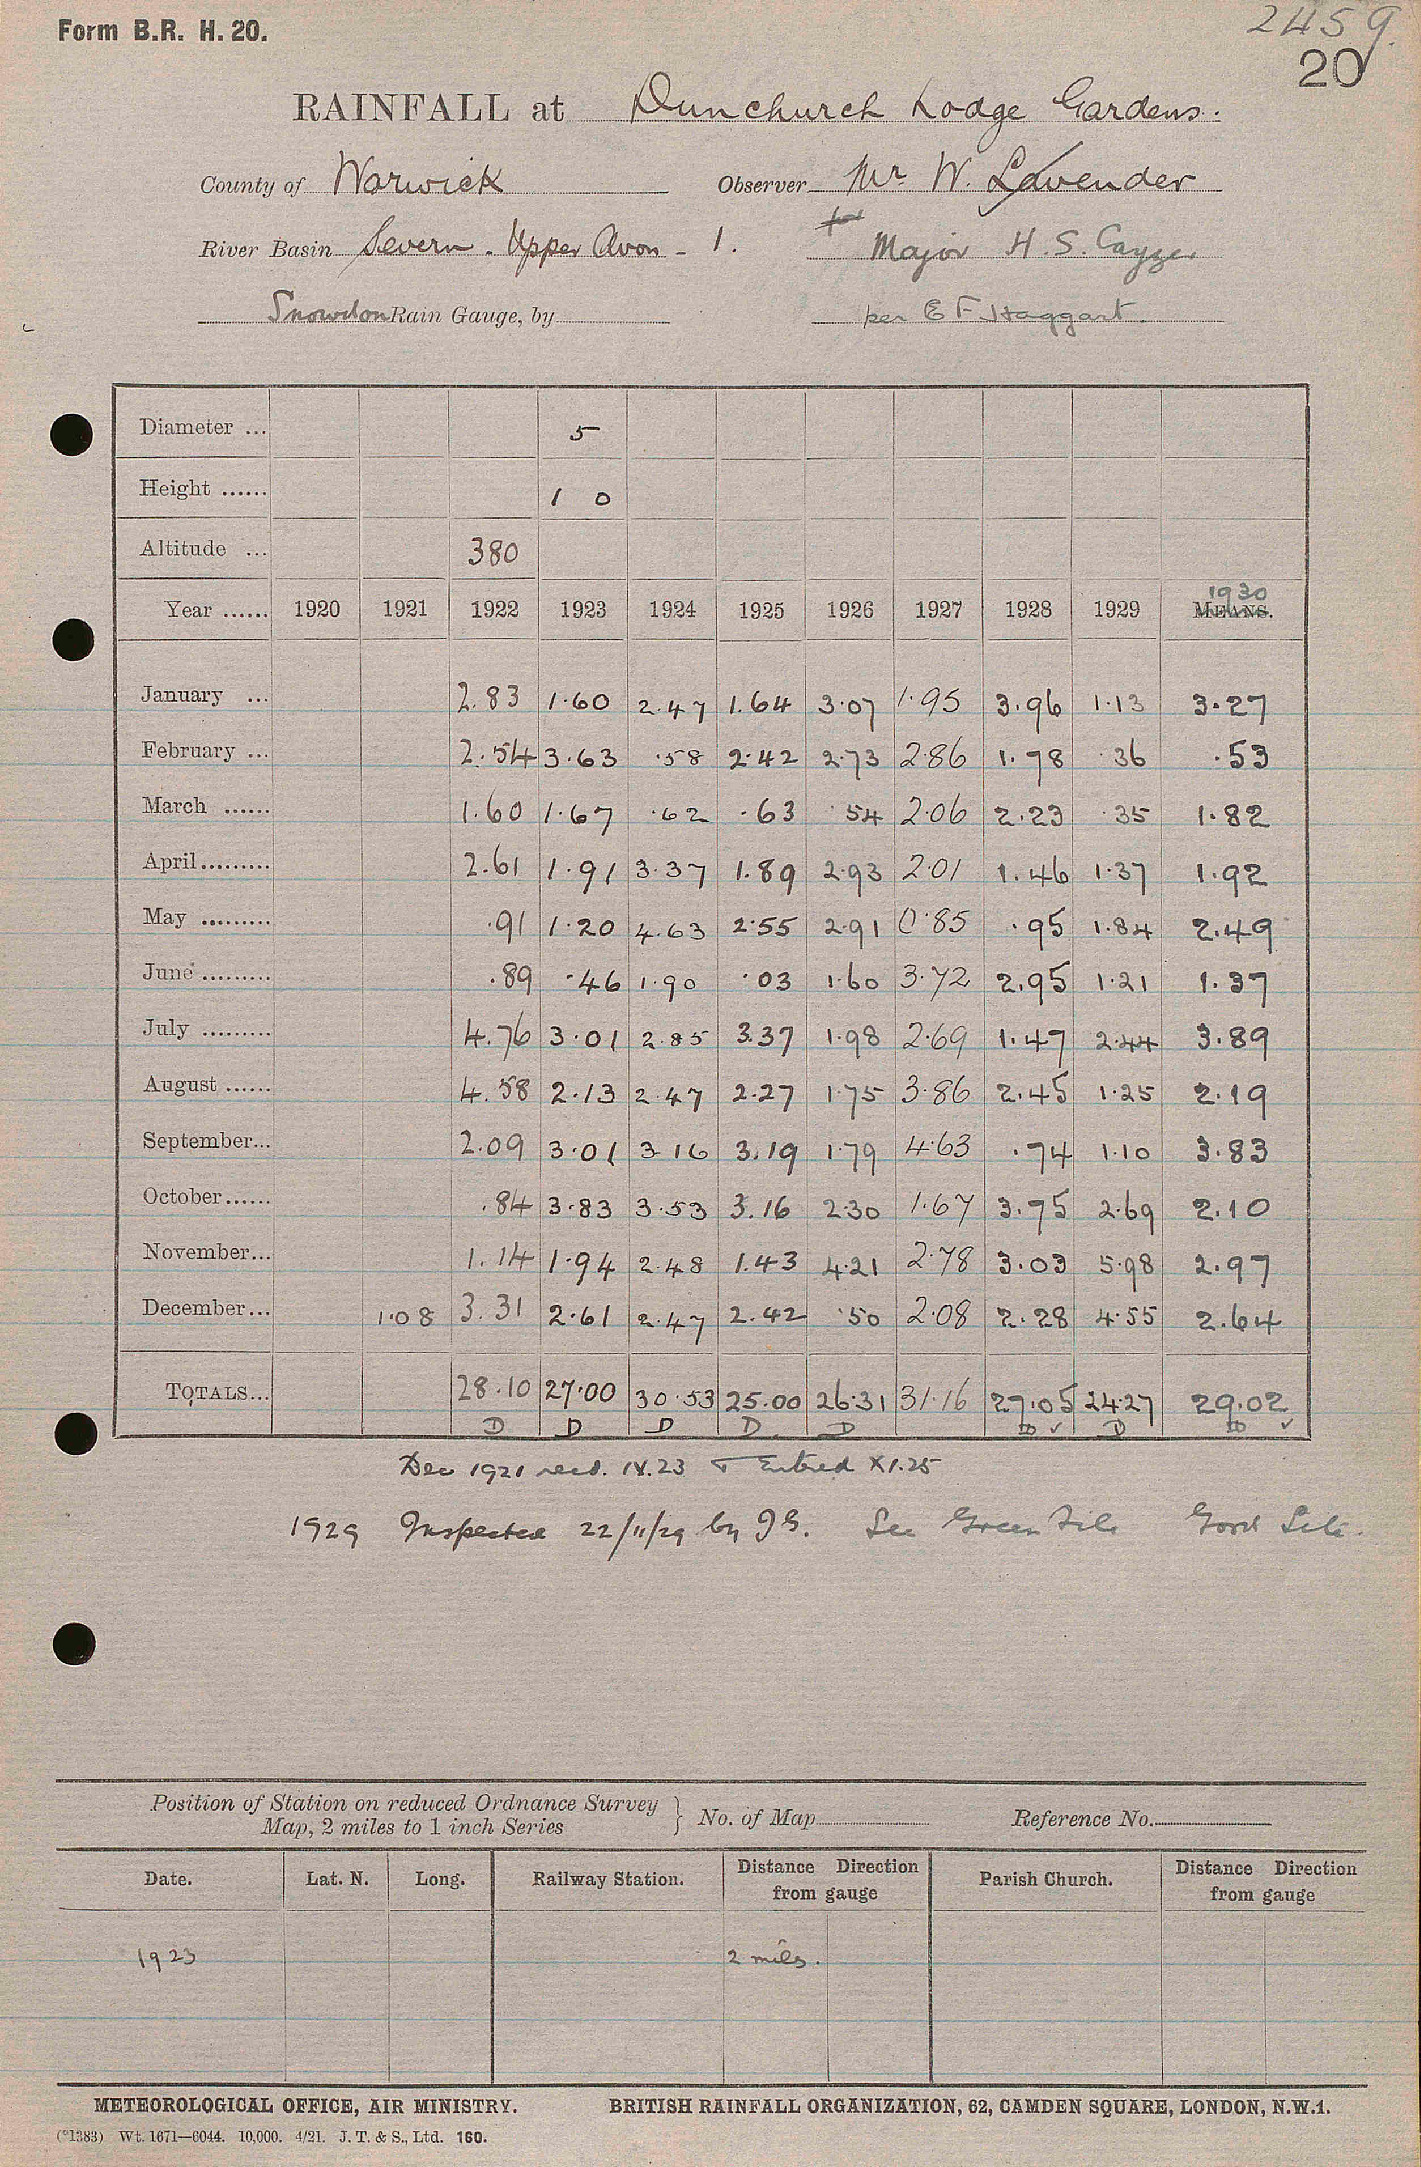 Form B.R. H. 20.
2459.
20
RAINFALL at Dunchurch Lodge Gardens.
County of Warwick Observer Mr. W. Lavender
River Basin Severn - Upper Avon - 1. for Major H. S. Cayzer
Snowdon Rain Gauge, by per E F Haggart.
Diameter ... 5
Height ...... 1 0
Altitude ... 380
1930
Year ...... 1920 1921 1922 1923 1924 1925 1926 1927 1928 1929 MEANS.
January ... 2.83 1.60 2.47 1.64 3.07 1.95 3.96 1.13 3.27
February ... 2.54 3.63 .58 2.42 2.73 2.86 1.78 .36 .53
March ...... 1.60 1.67 .62 .63 .54 2.06 2.23 .35 1.82
April......... 2.61 1.91 3.37 1.89 2.93 2.01 1.46 1.37 1.92
May ......... .91 1.20 4.63 2.55 2.91 0.85 .95 1.84 2.49
June ......... .89 .46 1.90 .03 1.60 3.72 2.95 1.21 1.37
July ......... 4.76 3.01 2.85 3.37 1.98 2.69 1.47 2.44 3.89
August ...... 4.58 2.13 2.47 2.27 1.75 3.86 2.45 1.25 2.19
September... 2.09 3.01 3.16 3.19 1.79 4.63 .74 1.10 3.83
October...... .84 3.83 3.53 3.16 2.30 1.67 3.75 2.69 2.10
November... 1.14 1.94 2.48 1.43 4.21 2.78 3.03 5.98 2.97
December... 1.08 3.31 2.61 2.47 2.42 .50 2.08 2.28 4.55 2.64
TOTALS... 28.10 27.00 30.53 25.00 26.31 31.16 27.05 24.27 29.02
D D D D D D ✓ D D ✓
Dec 1921 recd. 14.23 & Entered X1.25
1929 Inspected 22/11/29 by J G. See Green File Good Site.
Position of Station on reduced Ordnance Survey
Map, 2 miles to 1 inch Series } No. of Map Reference No.
Date. Lat. N. Long. Railway Station. Distance Direction from gauge Parish Church. Distance Direction from gauge
1923 2 miles.
METEOROLOGICAL OFFICE, AIR MINISTRY. BRITISH RAINFALL ORGANIZATION, 62, CAMDEN SQUARE, LONDON, N.W.1.
(*1383) Wt. 1671—6044. 10,000. 4/21. J. T. & S., Ltd. 160.